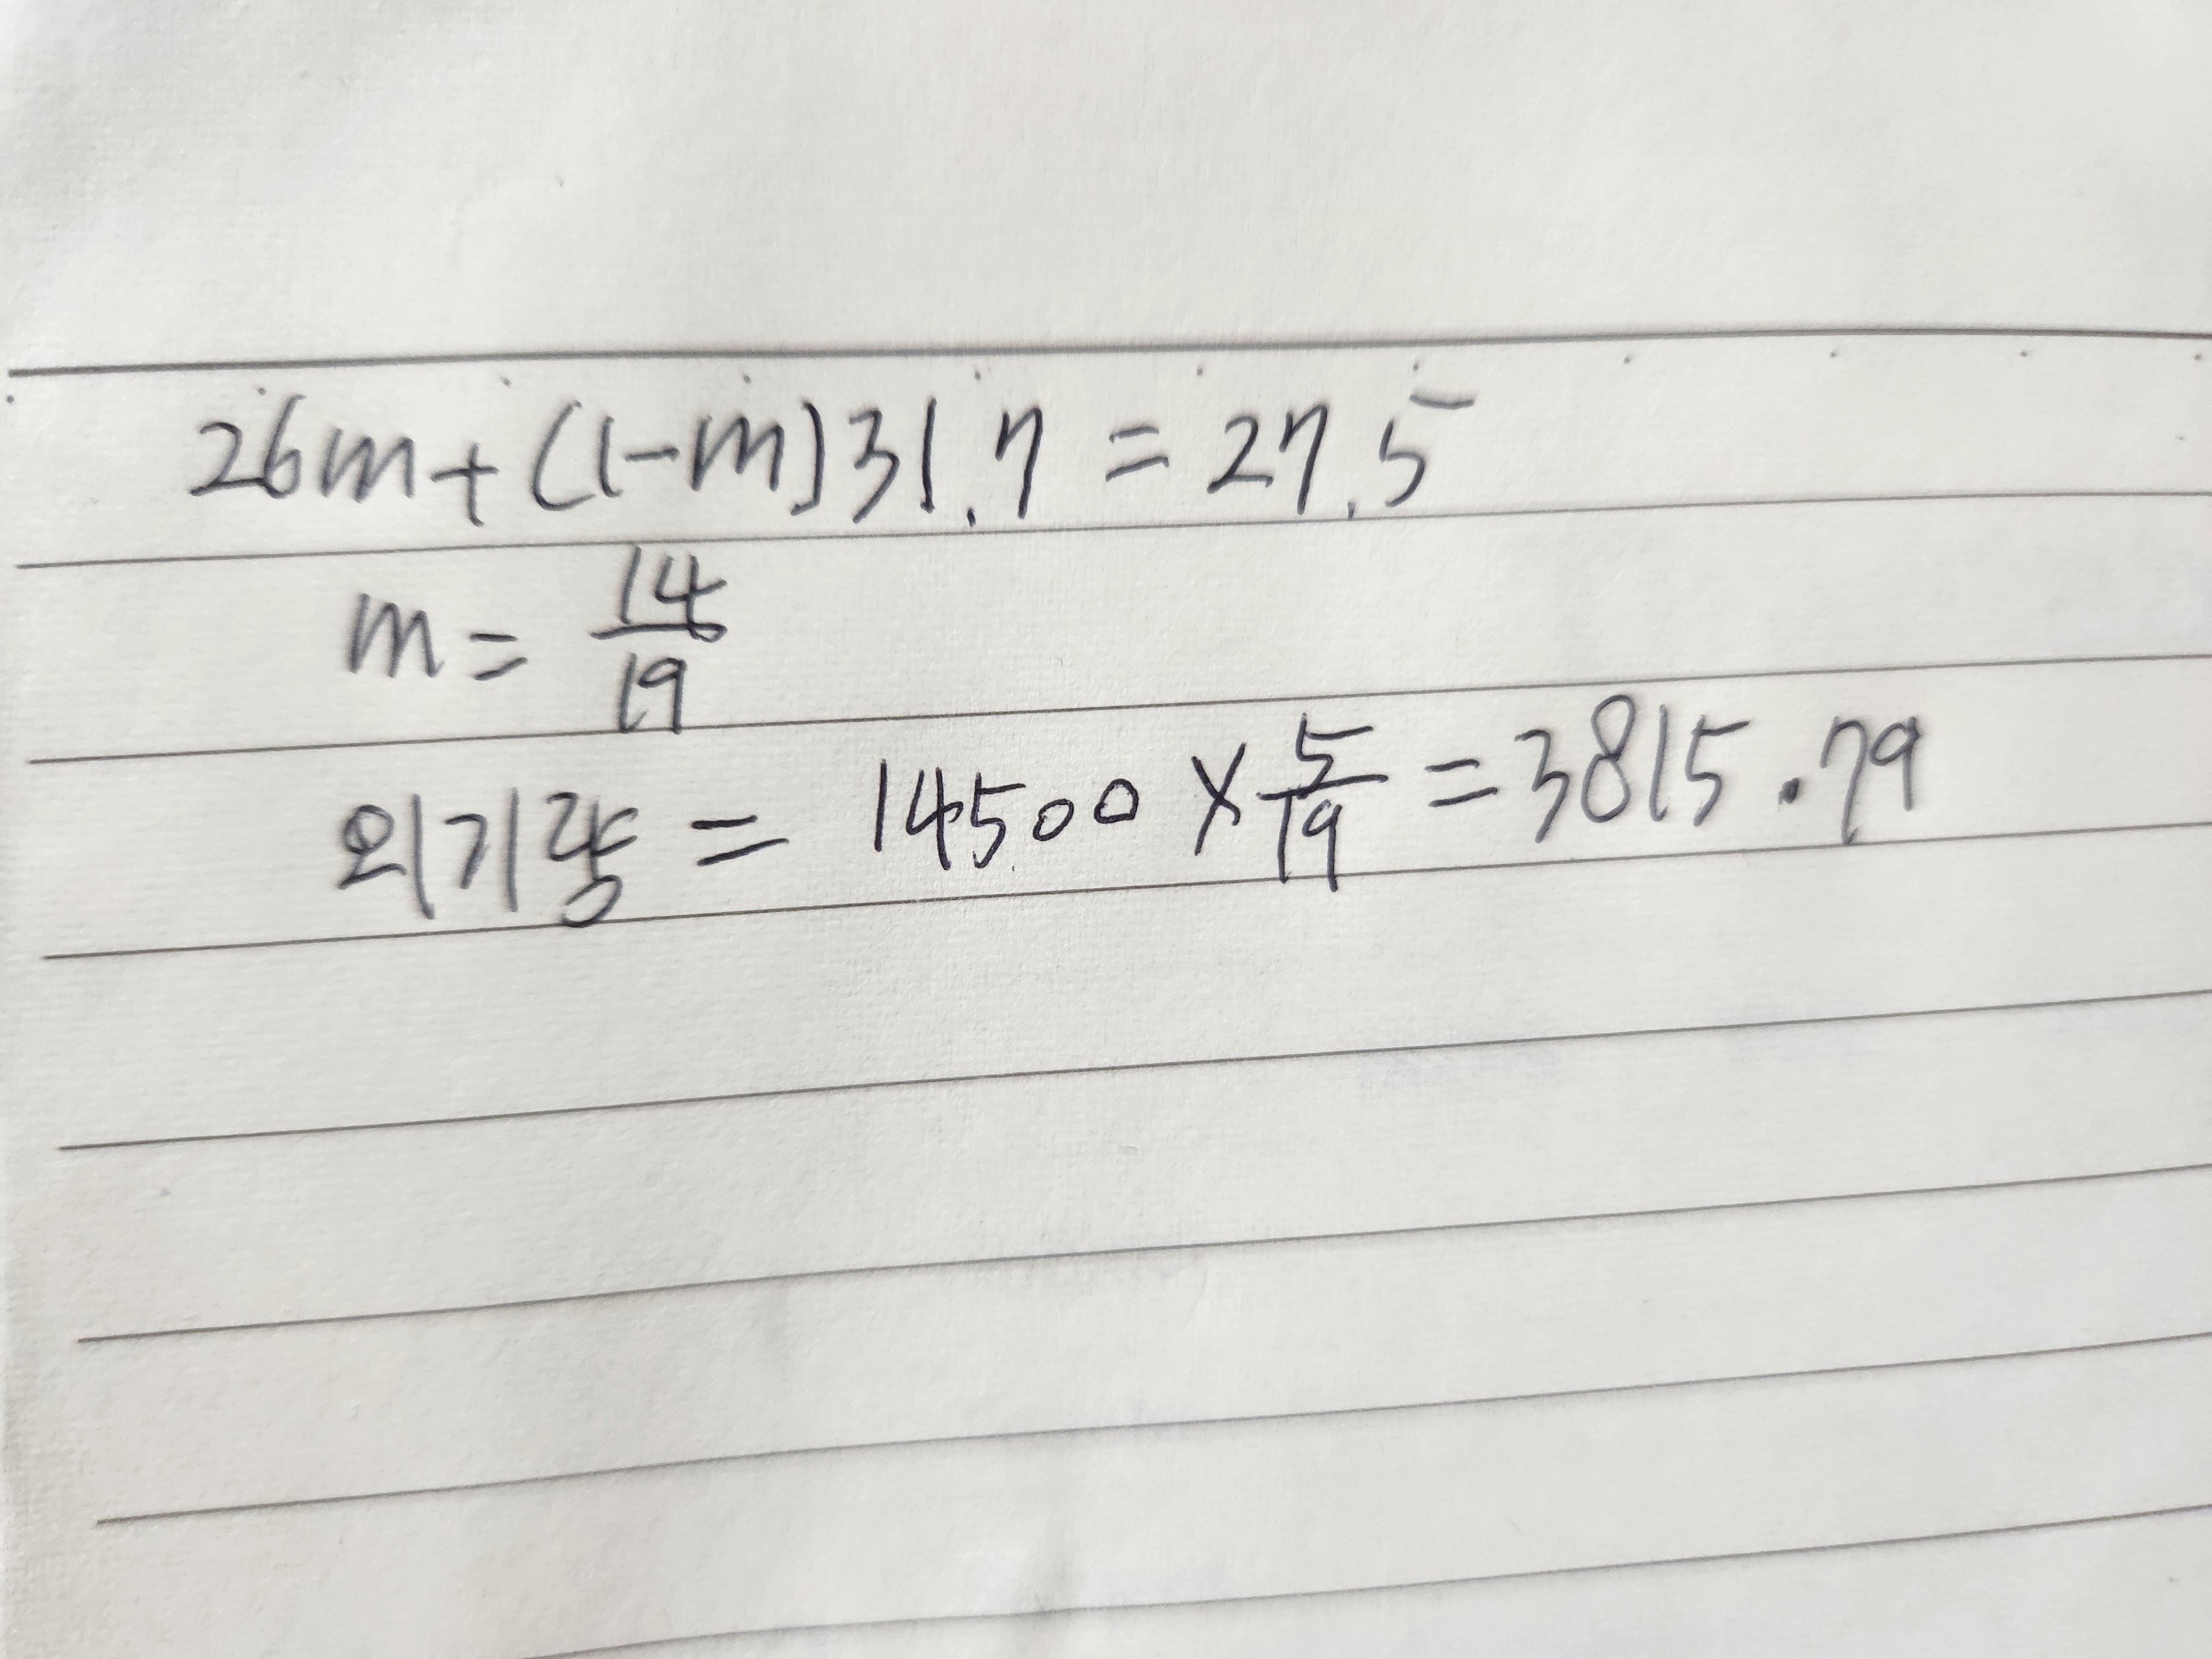 26m+(1-m)31.7 = 27.5
m = 14/19
외기량 = 14500 × 5/19 = 3815.79